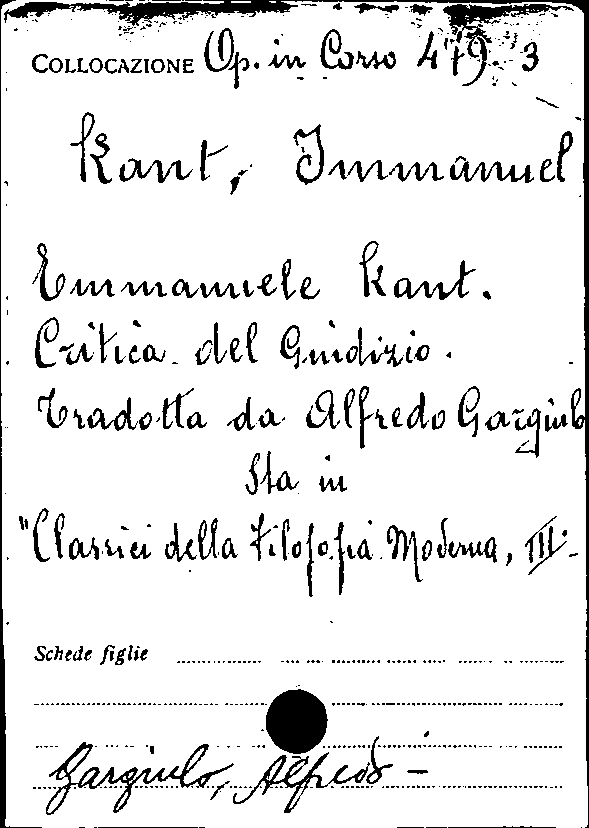 COLLOCAZIONE Op. in Corso 479. 3
Kant, Immanuel
Emmanuele Kant.
Critica del Giudizio.
Tradotta da Alfredo Gargiulo
Sta in
"Classici della Filosofia Moderna, III.-
Schede figlie
Gargiulo, Alfredo -